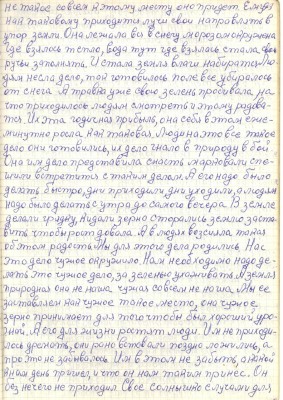 не такое совсем к этому месту оно придет Ему
как таковому приходить лучи свои направлять в
упор земли. Она лежало во в снегу морозом окружена
Где взялось тепло, вода тут где взялась стала, она
ручьи запомнать. И стала земля влаги набирать. Лю
дям несла дело, той готовилось поле все убиралось
от снега. А травка уже свою зелень пробивала на
сто приходилось людям смотреть и этому радова-
ться. Их эта годичная прибыль, она себя в этом еже-
минутно росла как таковая. Люди на это все такое
дело они готовились, их дело гнало в природу в бой
Она им дело представила снасть марковали спе-
шили встретится с таким делом. А его надо было
делать быстро, дни приходили дни уходили, а людям
надо было делать с утра до самого вечера. В земле
делали грядку, кидали зерно старались землю заста-
вить чтобы рот довала. А в людях возсияла такая
об этом радость. Мы для этого дела родились. Нас
это дело чужое окружило. Нам необходимо надо де-
лать это чужое дело, за зеленью ухаживать. А земля
природная она не наша чужая совсем не наша. Мы ее
заставляем как чужое такое место, она чужое
зерно принимает для того чтобы был хороший уро-
жай. А его для жизни ростят люди. Им не приходи-
лось дремать, они рано вставали поздно ложились, а
про это не забывалось. Им в этом не забыть, а какой
к нам день пришел, и что он нам таким принес. Он
без нечего не приходил. Свое солнышко случами для